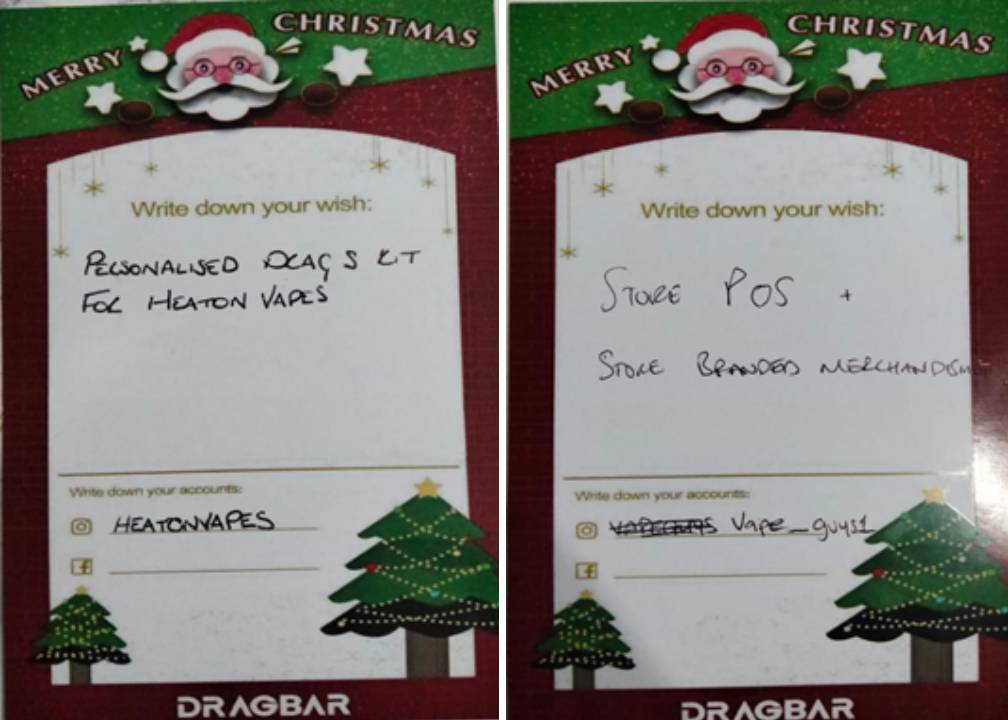 MERRY CHRISTMAS
Write down your wish:
PERSONALISED DRAG S KIT
FOR HEATON VAPES
Write down your accounts:
HEATONVAPES
DRAGBAR
MERRY CHRISTMAS
Write down your wish:
STORE POS +
STORE BRANDED MERCHANDISE
Write down your accounts:
Vape_guys1
DRAGBAR